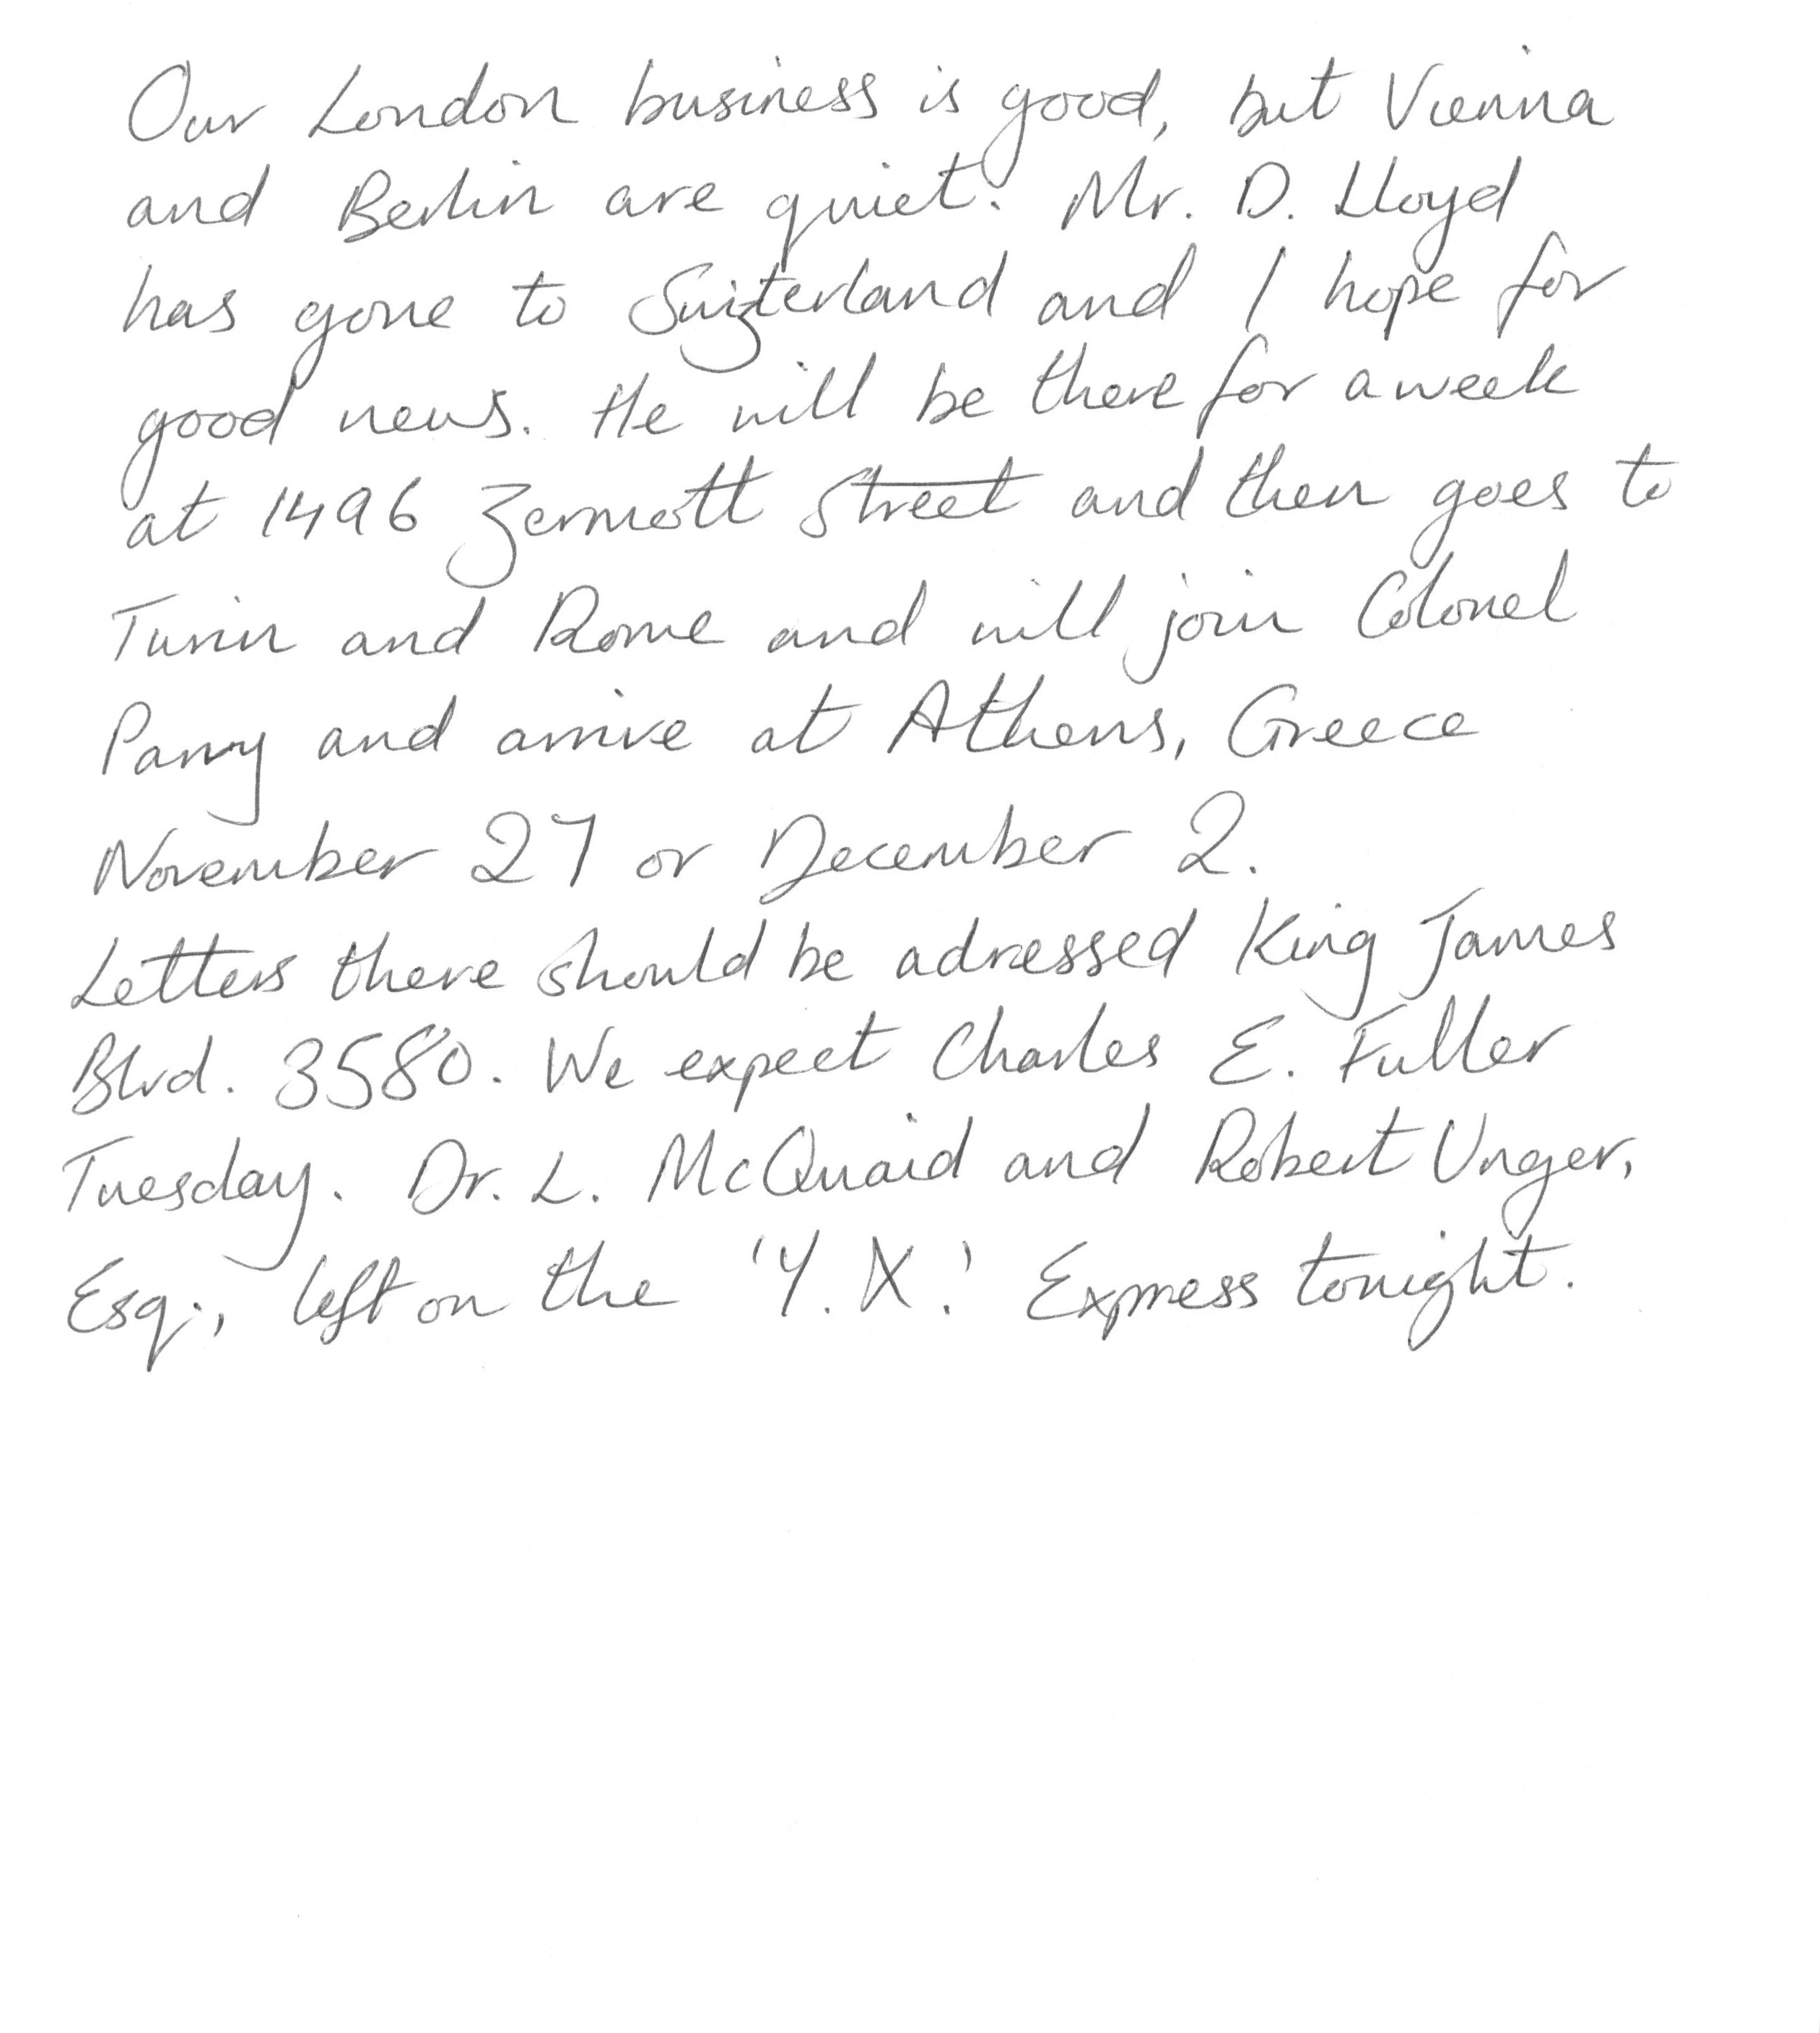 Our London business is good, but Vienna
and Berlin are quiet. Mr. D. Lloyd
has gone to Swizterland and I hope for
good news. He will be there for a week
at 1496 Zermott Street and then goes to
Turin and Rome and will join Colonel
Parry and arrive at Athens, Greece
November 27 or December 2.
Letters there should be adressed King James
Blvd. 3580. We expect Charles E. Fuller
Tuesday. Dr. L. McQuaid and Robert Unger,
Esq., left on the 'Y. X.' Express tonight.